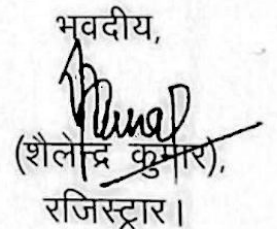 भवदीय,
(शैलेन्द्र कुमार),
रजिस्ट्रार।